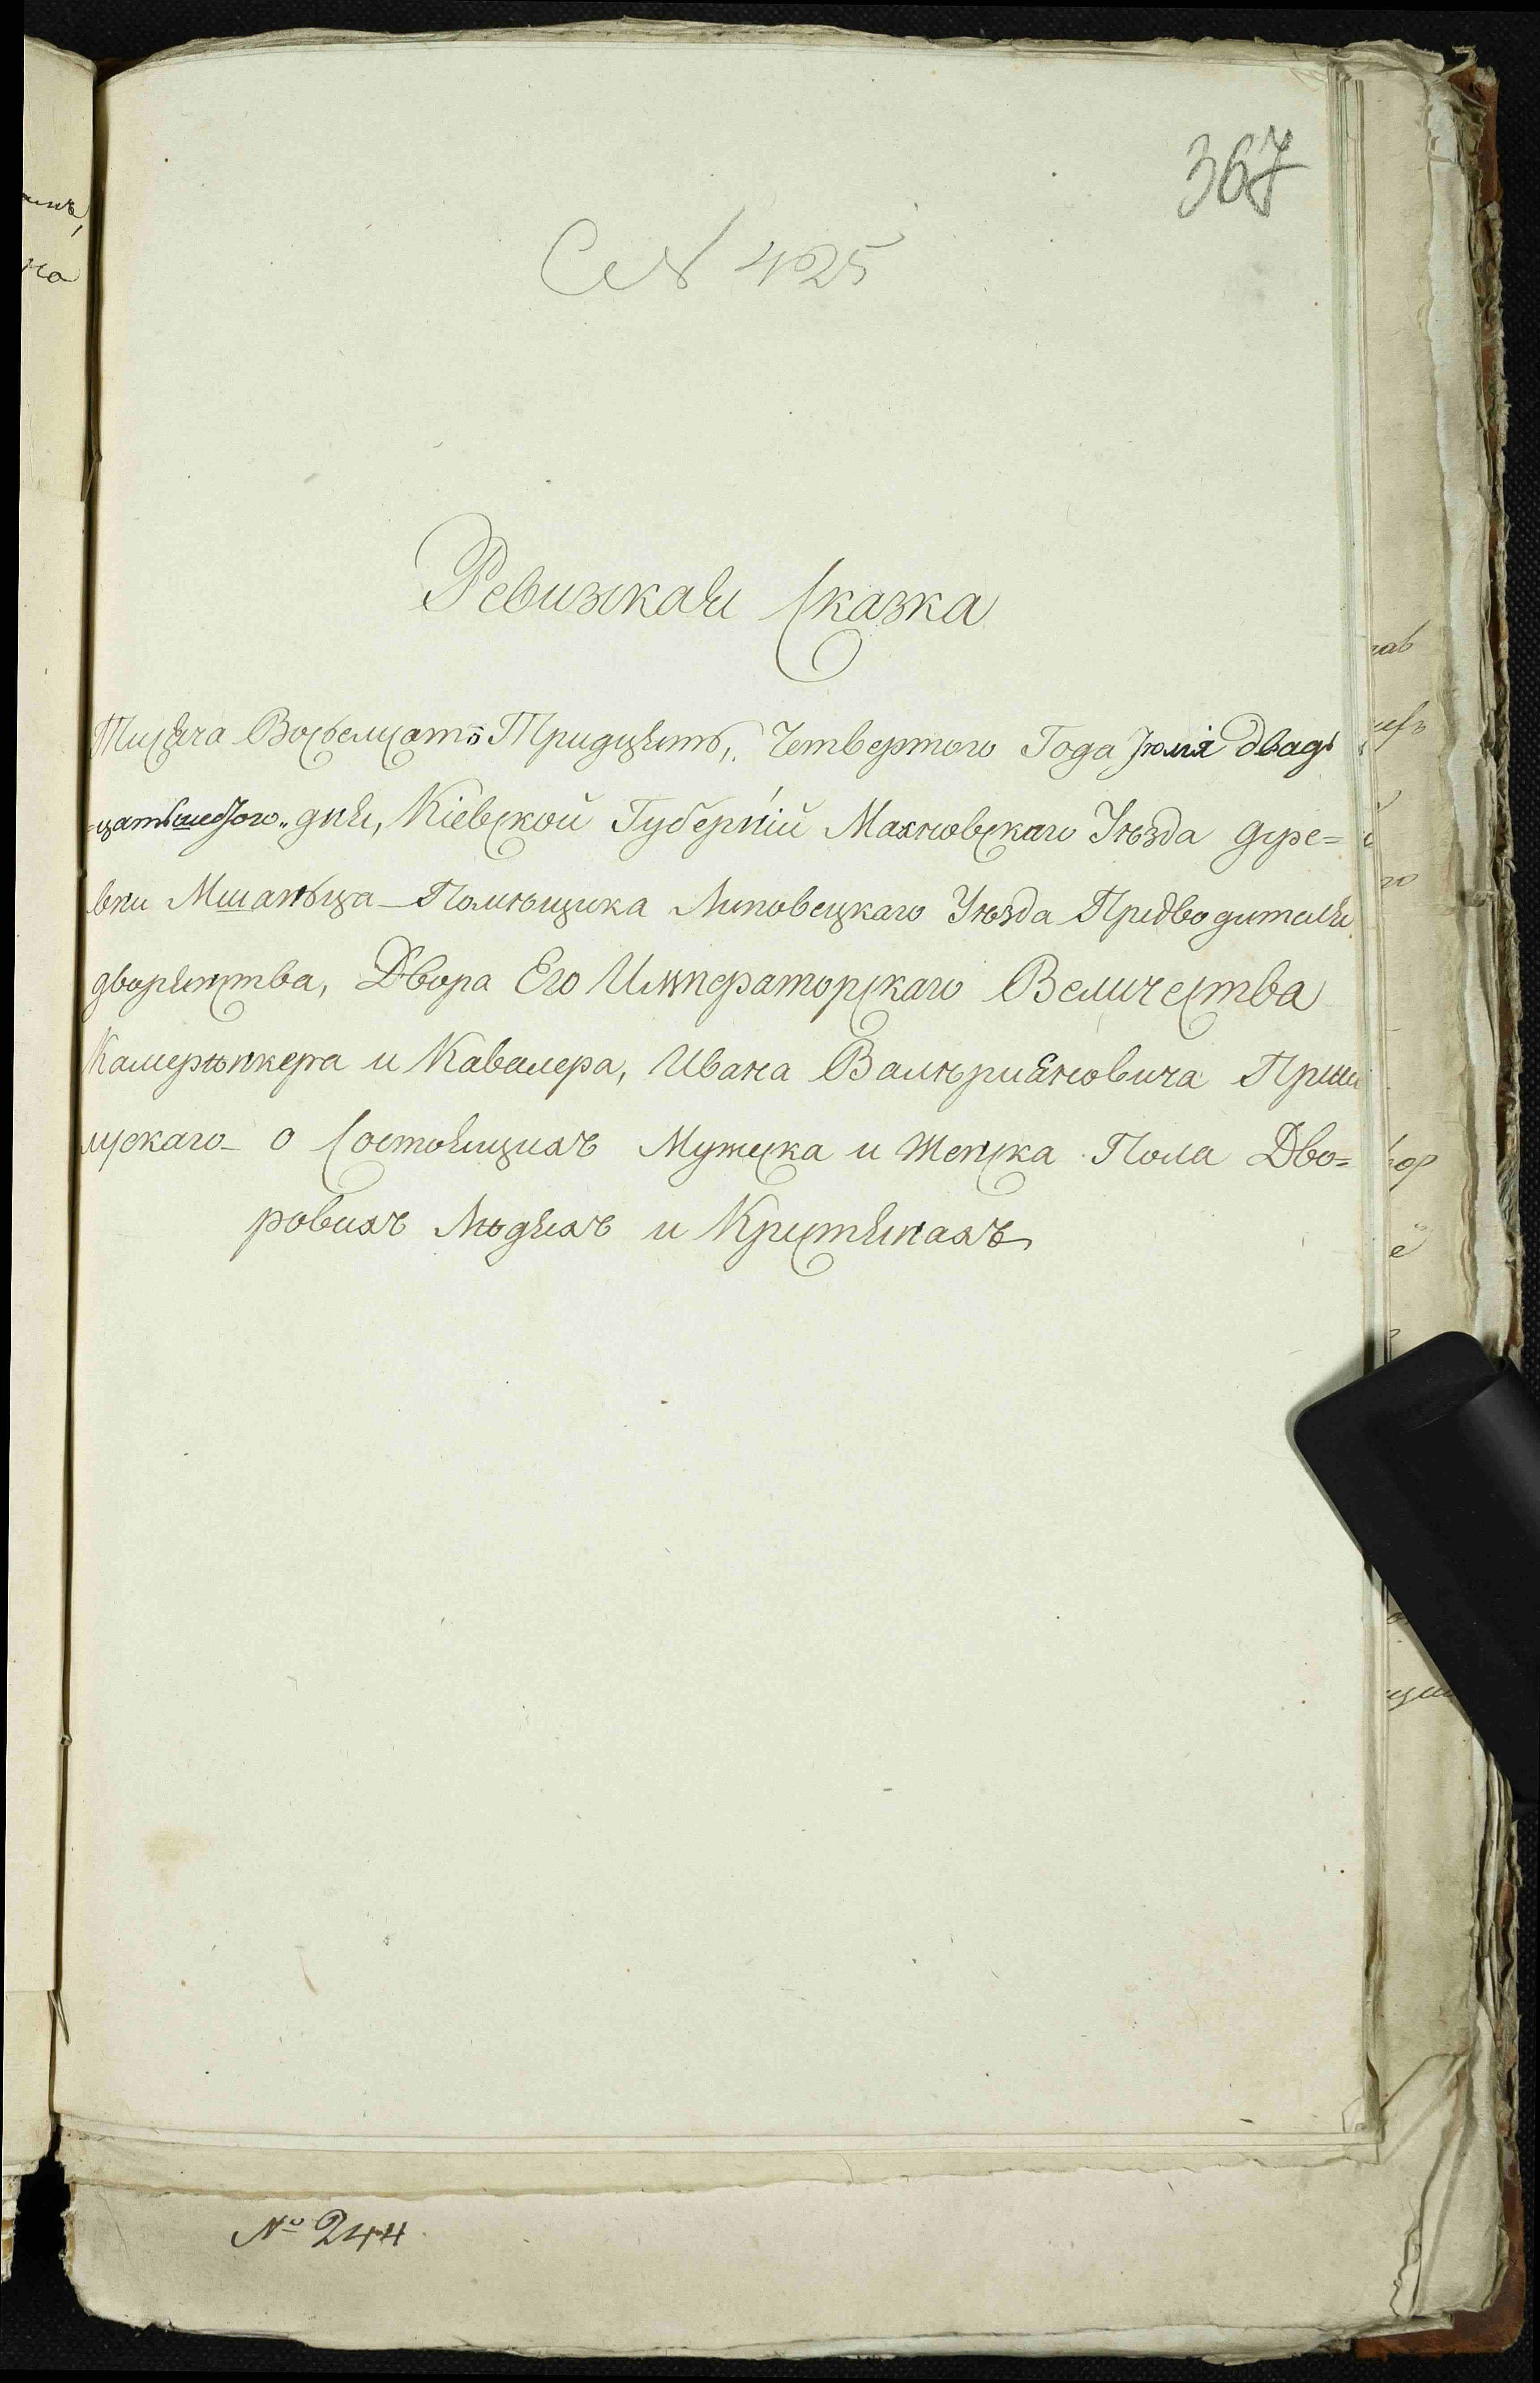 367
№ 425
Ревизкая Сказка
Тисяча Восьемсотъ Тридцять, Четвертого Года Июля двад
=цатьшестого дня, Кіевской Губерній Махновскаго Уѣзда дере=
вни Мшаньца – Помѣщика Липовецкаго Уѣзда Предводителя
дворянства, Двора Его Императорскаго Величества
Камерюнкера и Кавалера, Ивана Валѣрияновича
о Состоящихъ Мужеска и Женска Пола Дво=
ровихъ Людяхъ и Крестянахъ
№ 244